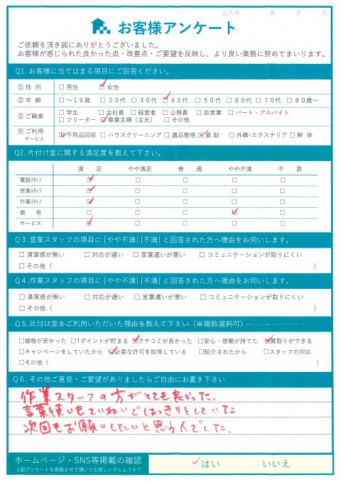 記入日 年 月 日
お客様アンケート
ご依頼を頂き誠にありがとうございました。
お客様が感じられた良かった点・改善点・ご要望を反映し、より良い業務に努めてまいります。
Q1. お客様に当てはまる項目にご回答ください。
①性別 □男性 ☑女性
②年齢 □～19歳 □20代 □30代 ☑40代 □50代 □60代 □70代 □80歳～
③ご職業 □学生 □会社員 □経営者 □公務員 □自営業 □パート・アルバイト
□フリーター ☑専業主婦(主夫) □その他
④ご利用サービス ☑不用品回収 □ハウスクリーニング □遺品整理 ☑買取 □外構・エクステリア □解体
Q2. 片付け堂に関する満足度を教えて下さい。
満足 やや満足 普通 やや不満 不満
電話スタッフ ☑ □ □ □ □
営業スタッフ ☑ □ □ □ □
作業スタッフ ☑ □ □ □ □
価格 □ □ □ ☑ □
サービス ☑ □ □ □ □
Q3. 営業スタッフの項目に[やや不満][不満]と回答された方へ理由をお伺いします。
□清潔感が無い □対応が遅い □言葉遣いが悪い □コミュニケーションが取りにくい
□その他( )
Q4. 作業スタッフの項目に[やや不満][不満]と回答された方へ理由をお伺いします。
□清潔感が無い □対応が遅い □言葉遣いが悪い □コミュニケーションが取りにくい
□その他( )
Q5. 片付け堂をご利用いただいた理由を教えて下さい(※複数選択可)
□価格が安かった □Tポイントが貯まる ☑クチコミが良かった □安心・信頼が持てた ☑買取りができる
□キャンペーンをしていたから ☑必要な許可を取得している □紹介されたから □スタッフの対応
□その他( )
Q6. その他ご意見・ご要望がありましたらご自由にお書き下さい
作業スタッフの方がとても良かった。
言葉使いもていねいではっきりしていた
次回もお願いしたいと思う人でした。
ホームページ・SNS等掲載の確認 ☑はい □いいえ
上記アンケートを掲載させて頂いても宜しいでしょうか?